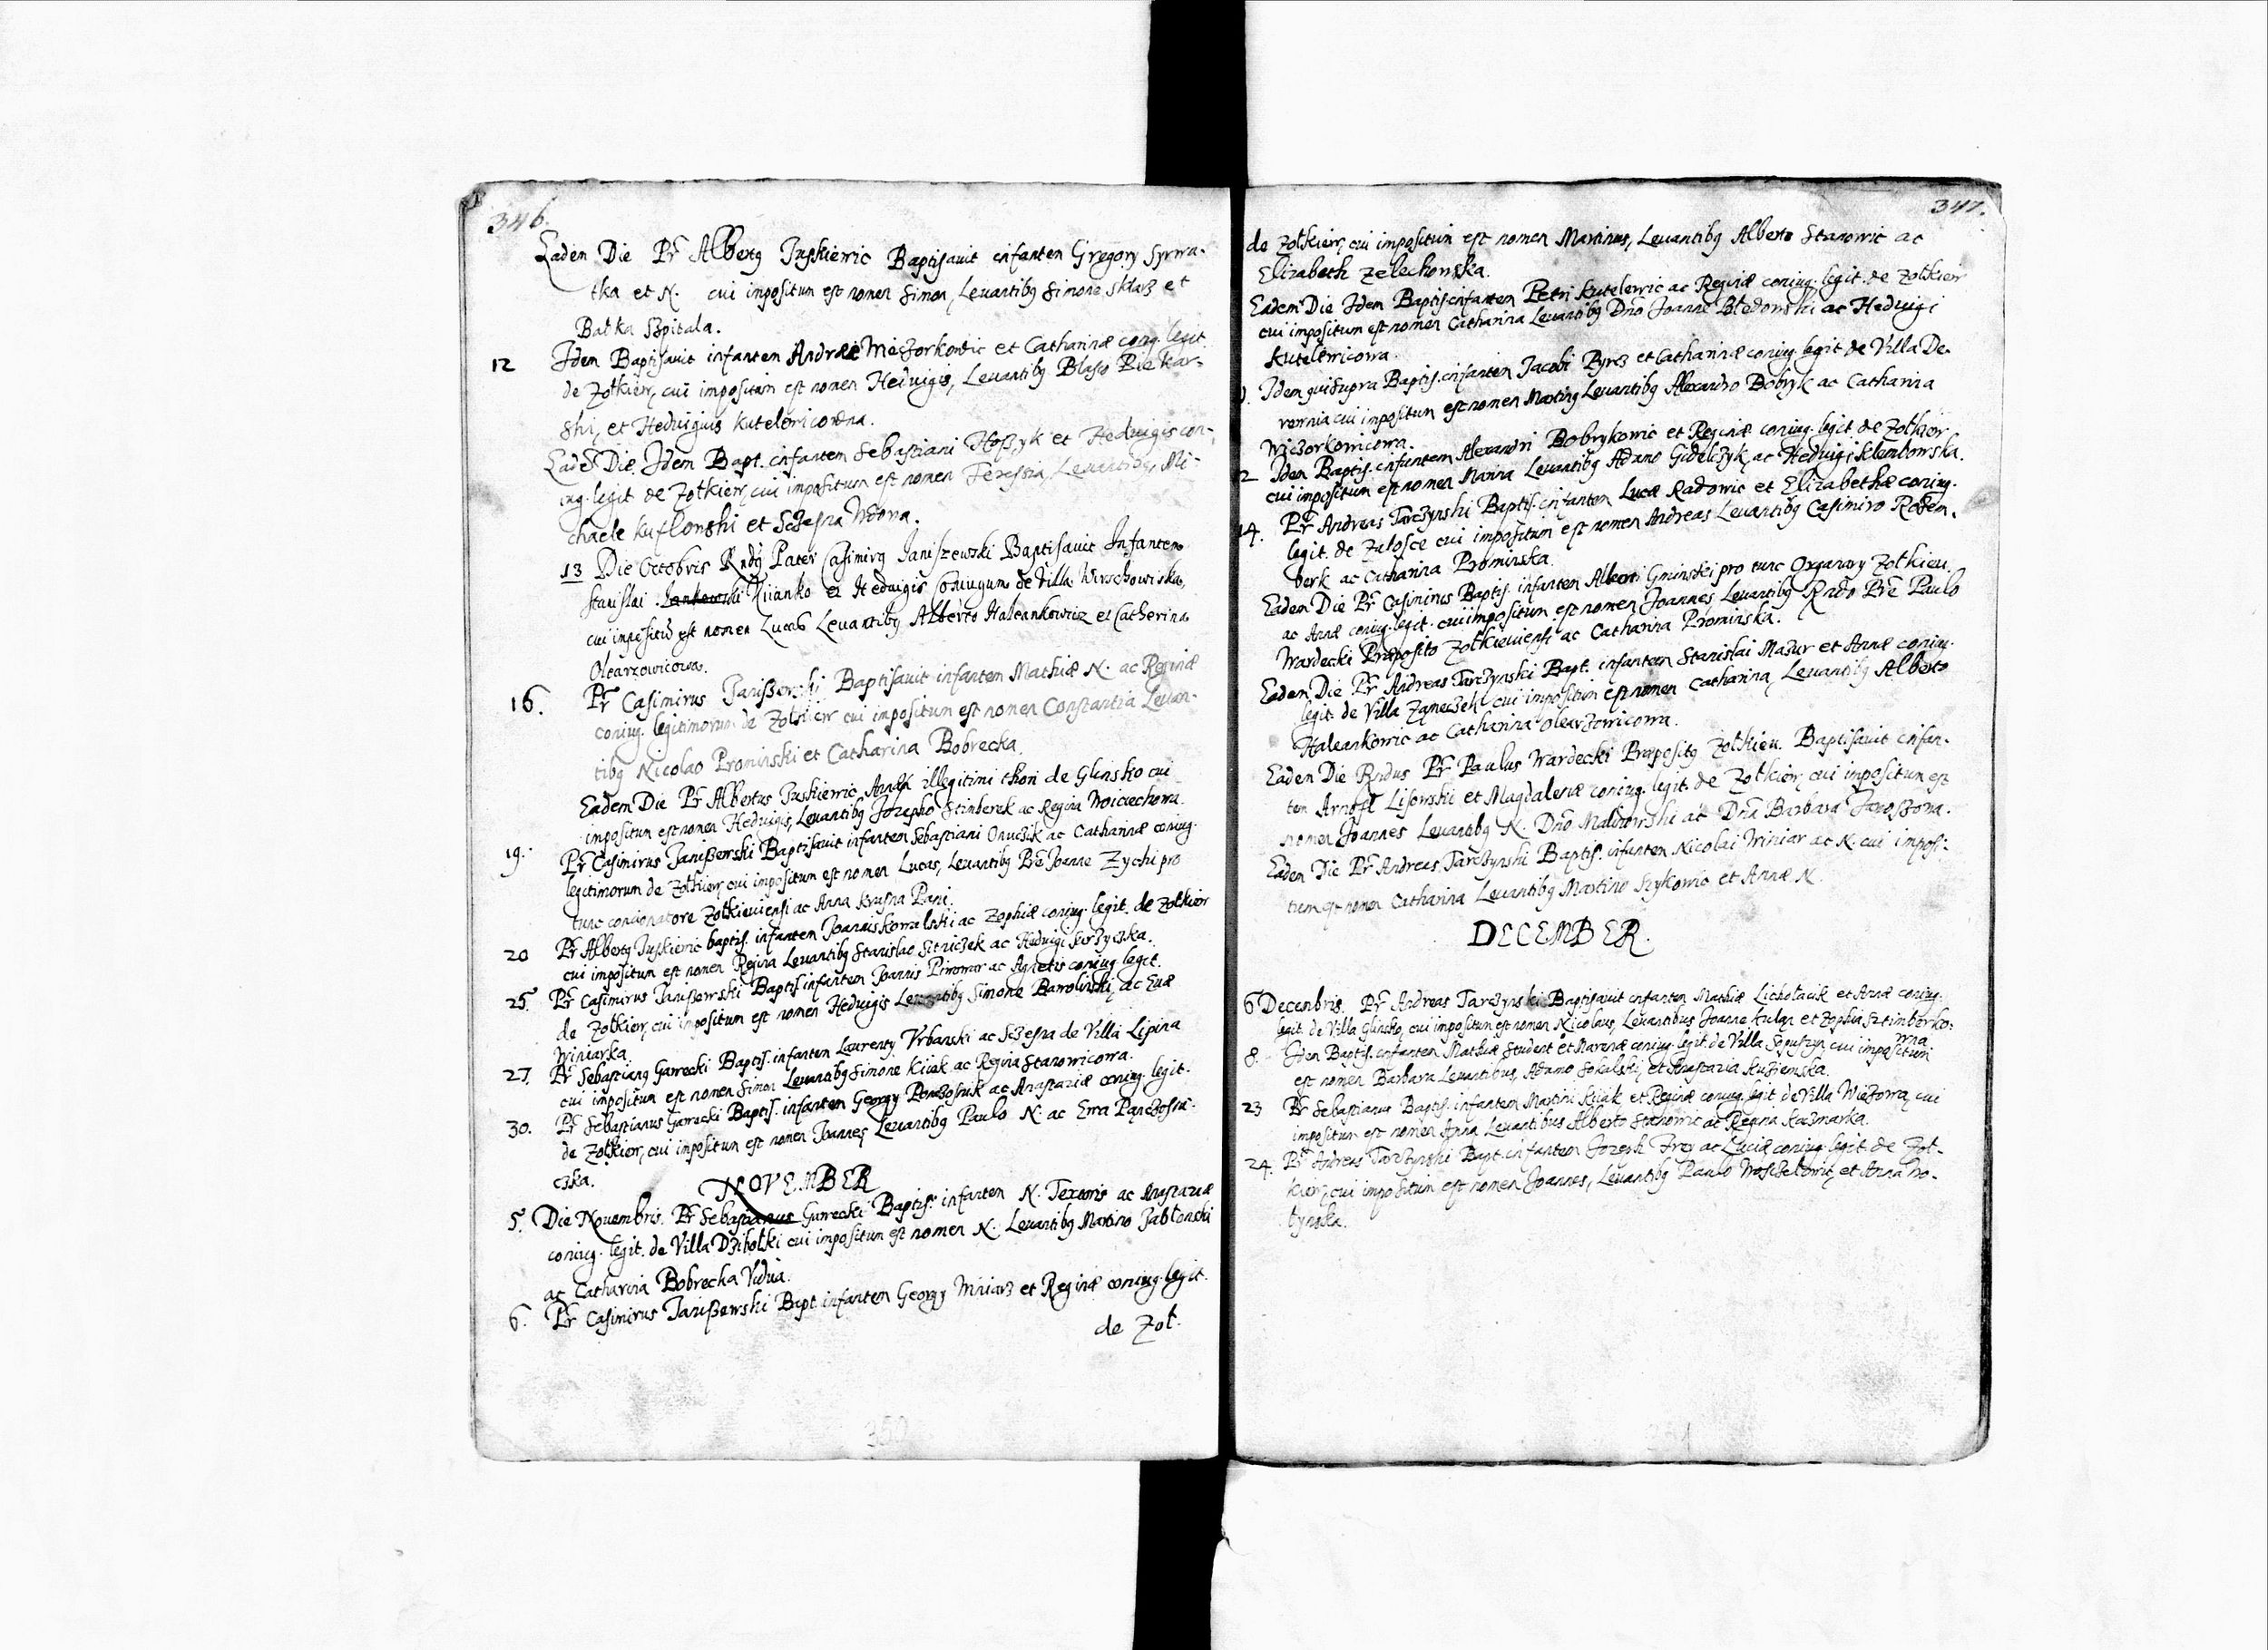 346.
Eadem Die Pr Albertg Juskiewic Baptisavit infantem Gregory Syrwa-
tka et N. cui impositum est nomen Simon, Levantibg Simone Sklarz et
Balka Szpitala.
12 Idem Baptisavit infantem Andreæ Wieczorkowic et Catharinæ coniug. legit.
de Zołkiew, cui impositum est nomen Hedvigis, Levantibg Blasio Piekar-
ski, et Hedvigis Kutelewicowna.
Eadē Die. Idem Bapt. infantem Sebastiani et Hedvigis con-
iug. legit de Zołkiew, cui impositum est nomen Teressia, Levantibg, Mi-
chaele Kuflowski et Sczesna Wdowa.
13 Die Octobris Rndg Pater Casimirg Janiszewski Baptisavit Infantem
Stanislai Kiianko et Hedvigis Coniugum de Villa
cui impositū est nomen Lucas Levantibg Alberto Haleankowicz et Catherina
Olearzowicowa.
16. Pr Casimirus Janiszewski Baptisavit infantem Mathiæ N. ac Reginæ
coniug. legitimorum de Zołkiew cui impositum est nomen Constantia Levan-
tibg Nicolao Prominski et Catharina Bobrecka.
Eadem Die Pr Albertus Juskiewic illegitimi thori de Glinsko cui
impositum est nomen Hedvigis, Levantibg Jozepho Sztimberek ac Regina Woiciechowa.
19. Pr Casimirus Janiszewski Baptisavit infantem Sebastiani Onuczik ac Catharinæ coniug.
legitimorum de Zołkiew, cui impositum est nomen Lucas, Levantibg Prē Joanne Zychi pro
tunc concionatore Zołkieviensi ac Anna Krasna Pani.
20 Pr Albertg Juskiewic baptis. infantem Joannis Kowalski ac Zophiæ coniug. legit. de Zołkiew
cui impositum est nomen Regina Levantibg Stanislao ac Hedvigi
25. Pr Casimirus Janiszewski Baptis infantem Joannis Piwowar ac Agnetis coniug. legit.
de Zołkiew, cui impositum est nomen Hedvigis Levantibg Simone Bawolinski, ac Evæ
Winiarka.
27. Pr Sebastiang Gawrecki Baptis. infantem Laurenty Vrbanski ac Sczesna de Villa Lipina
cui impositum est nomen Simon Levantibg Simone Kiiak ac Regina Stanowicowa.
30. Pr Sebastianus Gawrecki Baptis. infantem Georgy Ponczosnik ac Anastasiæ coniug. legit.
de Zołkiew, cui impositum est nomen Joannes Levantibg Paulo N. ac Ewa Pączosni-
czka.
NOVEMBER
5. Die Novembris. Pr Sebastianus Gawrecki Baptis. infantem N. Textoris ac Anastasiæ
coniug. legit. de Villa Dzibołki cui impositum est nomen N. Levantibg Martino Jabłonski
ac Catharina Bobrecka Vidua.
6. Pr Casimirus Janiszewski Bapt. infantem Georgy Winiarz et Reginæ coniug. legit.
de Zoł.
347.
de Zołkiew, cui impositum est nomen Martinus, Levantibg Alberto Stanowic ac
Elizabeth Zelechowska.
Eadem Die Idem Baptis infantem Petri Kutelewic ac Reginæ coniug. legit. de Zołkiew
cui impositum est nomen Catharina Levantibg Dno Joanne Błedowski ac Hedvigi
Kutelewicowa.
Idem qui supra Baptis. infantem Jacobi Pyrcz et Catharinæ coniug. legit de Villa De-
rewnia cui impositum est nomen Marting Levantibg Alexandro Bobryk ac Catharina
Wiczorkowicowa.
2 Idem Baptis. infantem Alexandri Bobrykowic et Reginæ coniug. legit. de Zołkiew.
cui impositum est nomen Marina Levantibg Adamo Gidelczyk, ac Hedvigi Sklembowska.
14. Pr Andreas Tarczynski Baptis. infantem Lucæ Radowic et Elizabethæ coniug.
legit. de Zalosce cui impositum est nomen Andreas Levantibg Casimiro Rozem-
berk ac Catharina Prominska.
Eadem Die Pr Casimirus Baptis. infantem Alberti Gminski pro tunc Organary Zołkiev.
ac Annæ coniug. legit. cui impositum est nomen Joannes Levantibg Rndo Prē Paulo
Wardecki Præposito Zołkieviensi ac Catharina Prominska.
Eadem Die Pr Andreas Tarczynski Bapt. infantem Stanislai Mazur et Annæ coniug.
legit. de Villa cui impositum est nomen Catharina, Levantibg Alberto
Haleankowic ac Catharina Olearzowicowa.
Eadem Die Rndus Pr Paulus Wardecki Præpositg Zołkiev. Baptisavit infan-
tem Arnolfi Lisowski et Magdalenæ coniug. legit. de Zołkiew, cui impositum est
nomen Joannes Levantibg N. Dno Malizowski ac Dna Barbara Jaroszowa.
Eadem Die Pr Andreas Tarczynski Baptis. infantem Nicolai Winiar ac N. cui imposi-
tum est nomen Catharina Levantibg Martino Szykowic et Annæ N.
DECEMBER.
6 Decenbris. Pr Andreas Tarczynski Baptisavit infantem Mathiæ Licholacik et Annæ coniug.
legit. de Villa Glinsko, cui impositum est nomen Nicolaus, Levantibus Joanne Kulap et Zophia Sztimberko-
wna
8. Idem Baptis. infantem Mathiæ Student et Marinæ coniug. legit. de Villa Sopuszyn cui impositum
est nomen Barbara Levantibus, Adamo Sokalski, et Anastasia
23 Pr Sebastianus Baptis. infantem Martini Kiiak et Reginæ coniug. legit de Villa Wiezowa, cui
impositum est nomen Anna Levantibus Alberto Stanowic ac Regina Kaczmarka.
24. Pr Andreas Tarczynski Bapt. infantem Jozeph Frey ac Luciæ coniug. legit. de Zoł-
kiew, cui impositum est nomen Joannes, Levantibg Paulo et Anna Wo-
tynska.